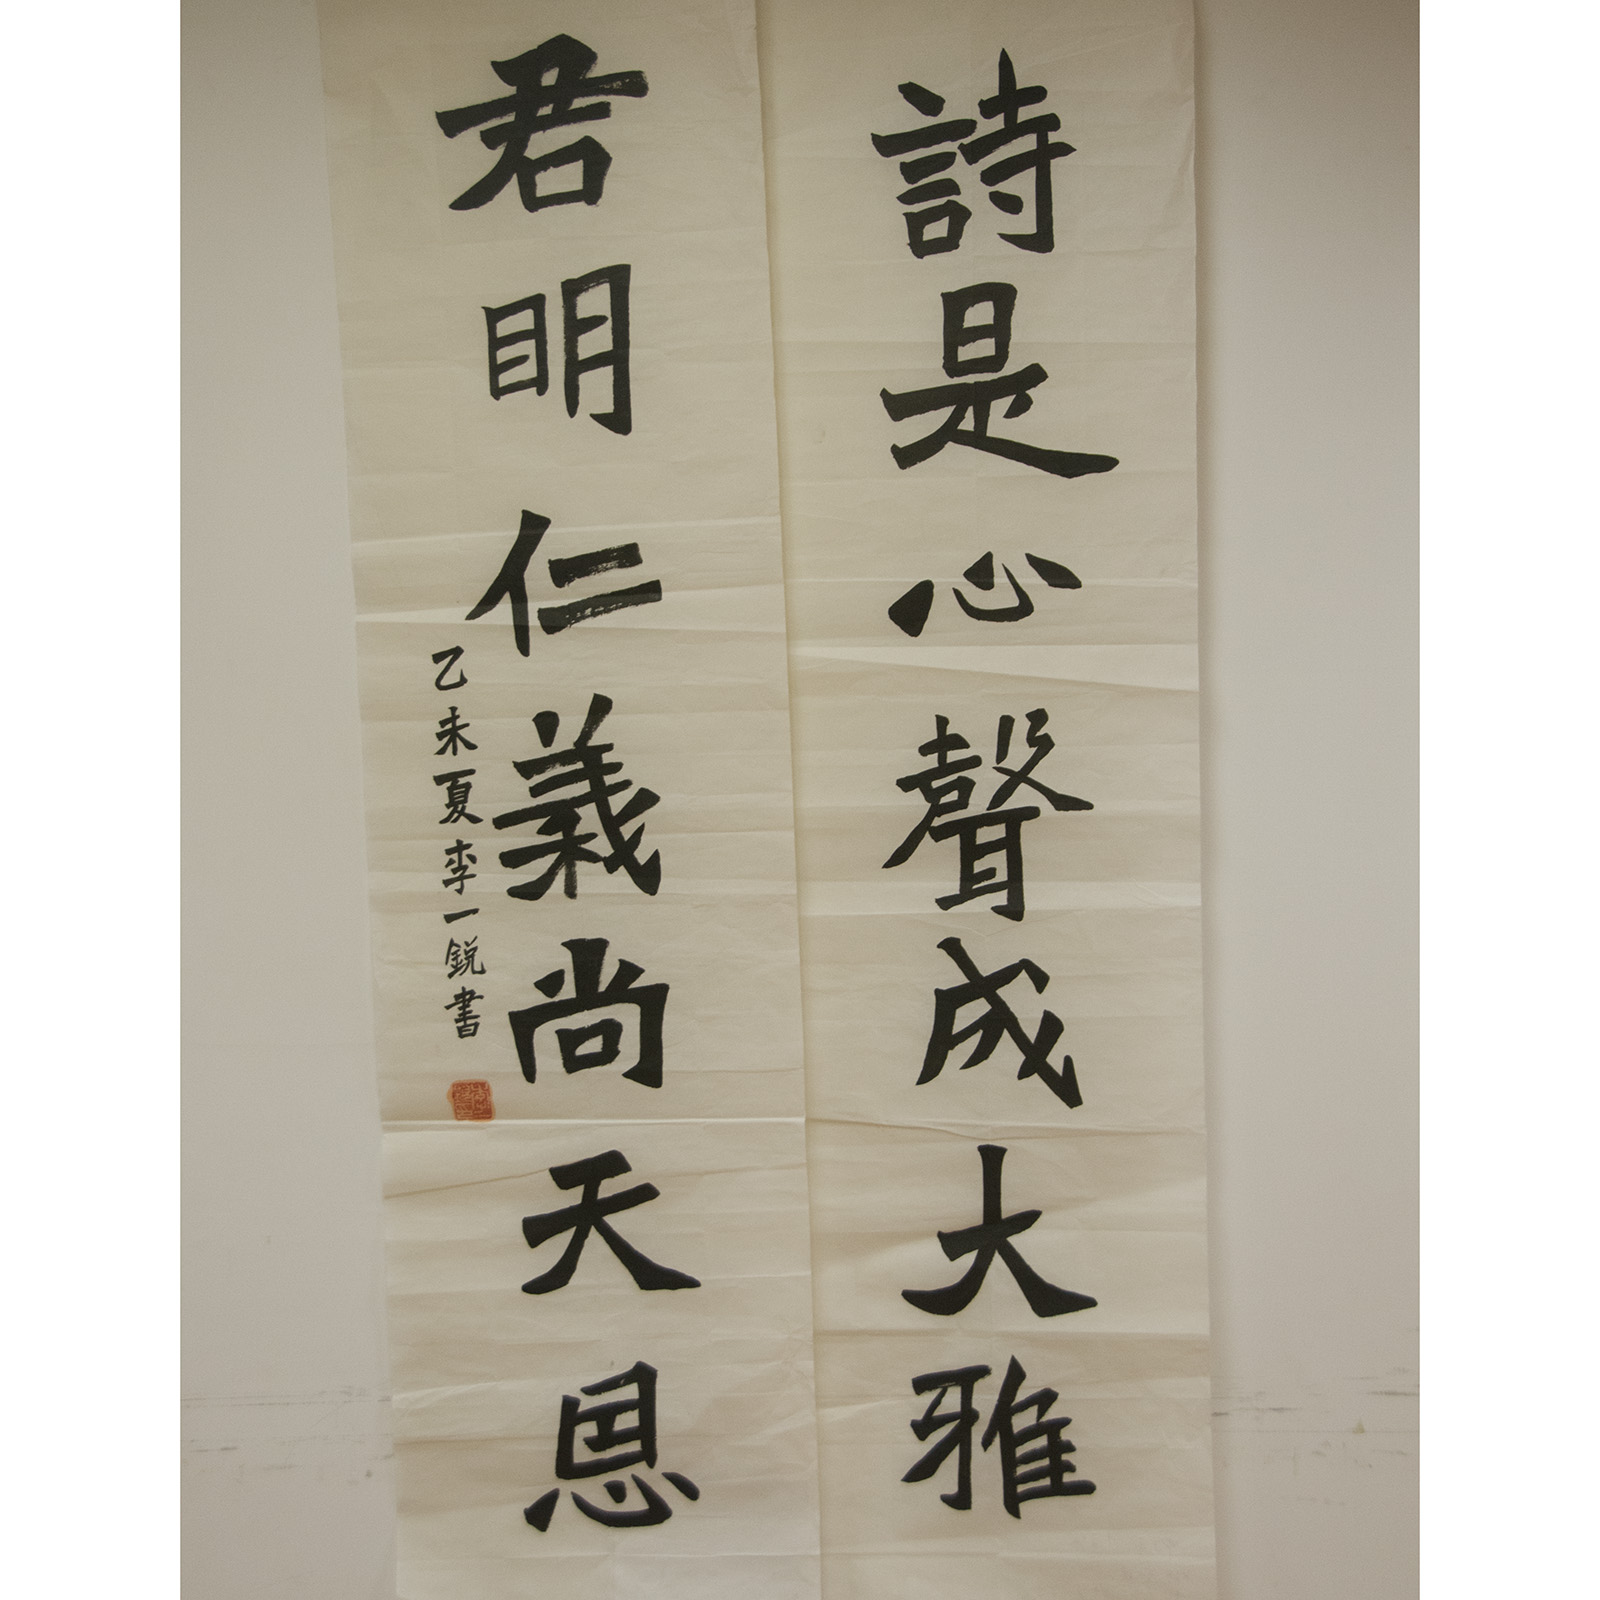 詩是心聲成大雅
君明仁義尚天恩
乙未夏李一鋭書